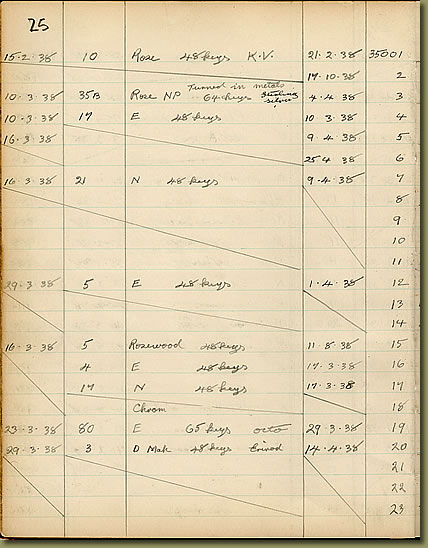 25
15·2·38 10 Rose 48 keys K.V. 21·2·38 35001
17·10·38 2
Turned in metals
10·3·38 35B Rose NP 64 keys 4·4·38 3
10·3·38 17 E 48 keys 10 3·38 4
16·3·38 9 4·38 5
25 4 38 6
16 3 38 21 N 48 keys 9·4·38 7
8
9
10
11
29·3·38 5 E 48 keys 1·4·38 12
13
14
16·3·38 5 Rosewood 48 keys 11·8·38 15
4 E 48 keys 17·3·38 16
17 N 48 keys 17·3·38 17
Chrom 18
23·3·38 80 E 65 keys octo 29·3·38 19
29·3·38 3 D Mah 48 keys 14·4·38 20
21
22
23